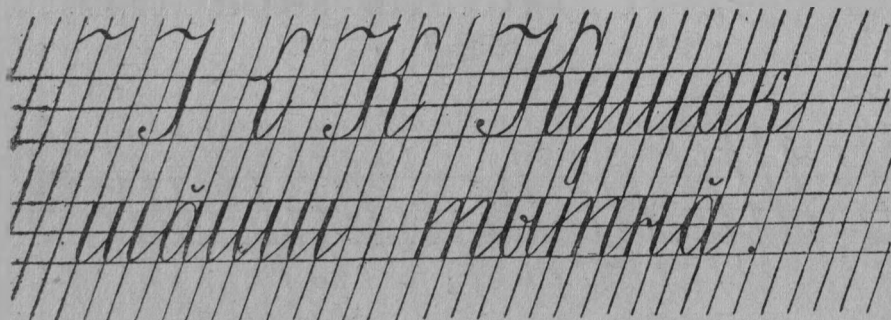 К Кушак
шăши тытнă.